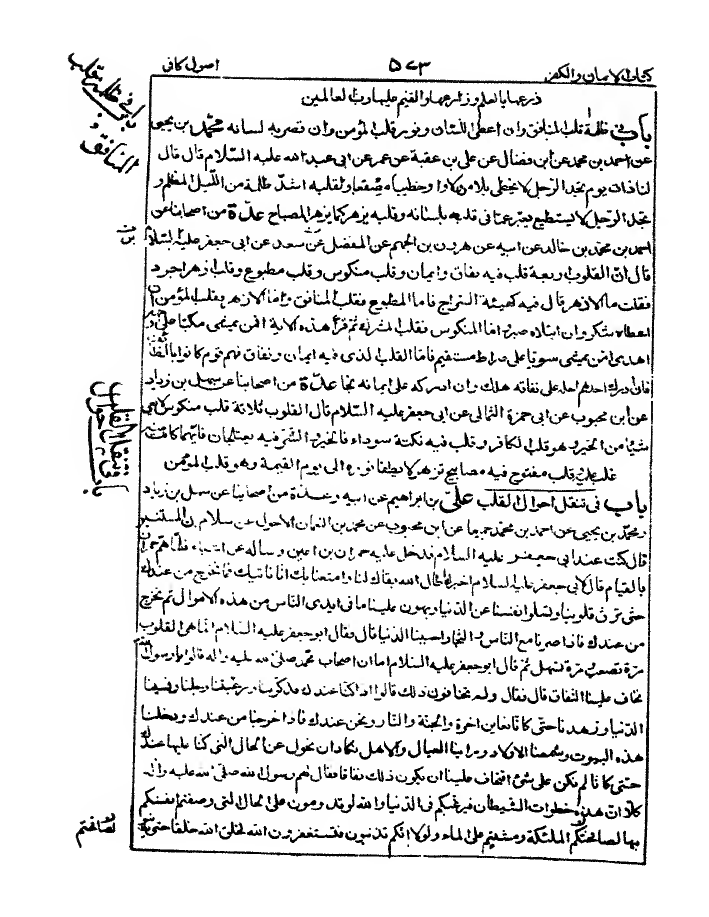 كتاب الايمان والكفر
٥٧٣
اصول كافى
زرعها بالعلم وزارعها والقيم عليها رب العالمين
باب فى ظلمة قلب المنافق وان اعطى اللسان ونور قلب المؤمن وان قصر به لسانه محمد بن يحيى
عن احمد بن محمد عن ابن فضال عن على بن عقبة عن عمر عن ابى عبد الله عليه السلام قال قال
لنا ذات يوم تجد الرجل لا يخطى بلام ولا واو خطيبا مصقعا ولقلبه اشد ظلمة من الليل المظلم و
تجد الرجل لا يستطيع يعبر عما فى قلبه بلسانه وقلبه يزهر كما يزهر المصباح عدّة من اصحابنا عن
احمد بن محمد بن خالد عن ابيه عن هرون بن الجهم عن المفضل عن سعد عن ابى جعفر عليه السلام
قال ان القلوب اربعة قلب فيه نفاق وايمان وقلب منكوس وقلب مطبوع وقلب ازهر اجرد
فقلت ما الازهر قال فيه كهيئة السراج فاما المطبوع فقلب المنافق واما الازهر فقلب المؤمن ان
اعطاه شكر وان ابتلاه صبر واما المنكوس فقلب المشرك ثم قرأ هذه الاية افمن يمشى مكبا على وجهه
اهدى امن يمشى سويا على صراط مستقيم فاما القلب الذى فيه ايمان ونفاق فهم قوم كانوا بالطائف
فان ادرك احدهم اجله على نفاقه هلك وان ادركه على ايمانه نجا عدّة من اصحابنا عن سهل بن زياد
عن ابن محبوب عن ابى حمزة الثمالى عن ابى جعفر عليه السلام قال القلوب ثلاثة قلب منكوس لا يعى
شيئا من الخير وهو قلب الكافر وقلب فيه نكتة سوداء فالخير والشر فيه يعتلجان فايهما كانت منه
غلب عليه وقلب مفتوح فيه مصابيح تزهر لا يطفأ نوره الى يوم القيمة وهو قلب المؤمن
باب فى تنقل احوال القلب على بن ابراهيم عن ابيه وعدة من اصحابنا عن سهل بن زياد
ومحمد بن يحيى عن احمد بن محمد جميعا عن ابن محبوب عن محمد بن النعمان الاحول عن سلام بن المستنير
قال كنت عند ابى جعفر عليه السلام فدخل عليه حمران بن اعين وساله عن اشياء فلما هم حمران
بالقيام قال لابى جعفر عليه السلام اخبرك اطال الله بقاك لنا وامتعنا بك انا ناتيك فما نخرج من عندك
حتى ترق قلوبنا وتسلوا انفسنا عن الدنيا ويهون علينا ما فى ايدى الناس من هذه الاموال ثم نخرج
من عندك فاذا صرنا مع الناس والتجار احببنا الدنيا قال فقال ابو جعفر عليه السلام انما هى القلوب
مرة تصعب ومرة تسهل ثم قال ابو جعفر عليه السلام اما ان اصحاب محمد صلى الله عليه واله قالوا يا رسول الله
نخاف علينا النفاق قال فقال ولم تخافون ذلك قالوا اذا كنا عندك فذكرتنا ورغبتنا وجلنا ونسينا
الدنيا وزهدنا حتى كانا نعاين الاخرة والجنة والنار ونحن عندك فاذا خرجنا من عندك ودخلنا
هذه البيوت وشممنا الاولاد وراينا العيال والاهل نكاد ان نحول عن الحال التى كنا عليها عندك
حتى كانا لم نكن على شئ افتخاف علينا ان يكون ذلك نفاقا فقال لهم رسول الله صلى الله عليه واله
كلا ان هذه خطوات الشيطان فيرغبكم فى الدنيا والله لو تدومون على الحال التى وصفتم انفسكم
بها لصافحتكم الملئكة ومشيتم على الماء ولولا انكم تذنبون فتستغفرون الله لخلق الله خلقا حتى
باب فى ظلمة قلب
المنافق
باب فى تنقل احوال القلب
لصافحتم